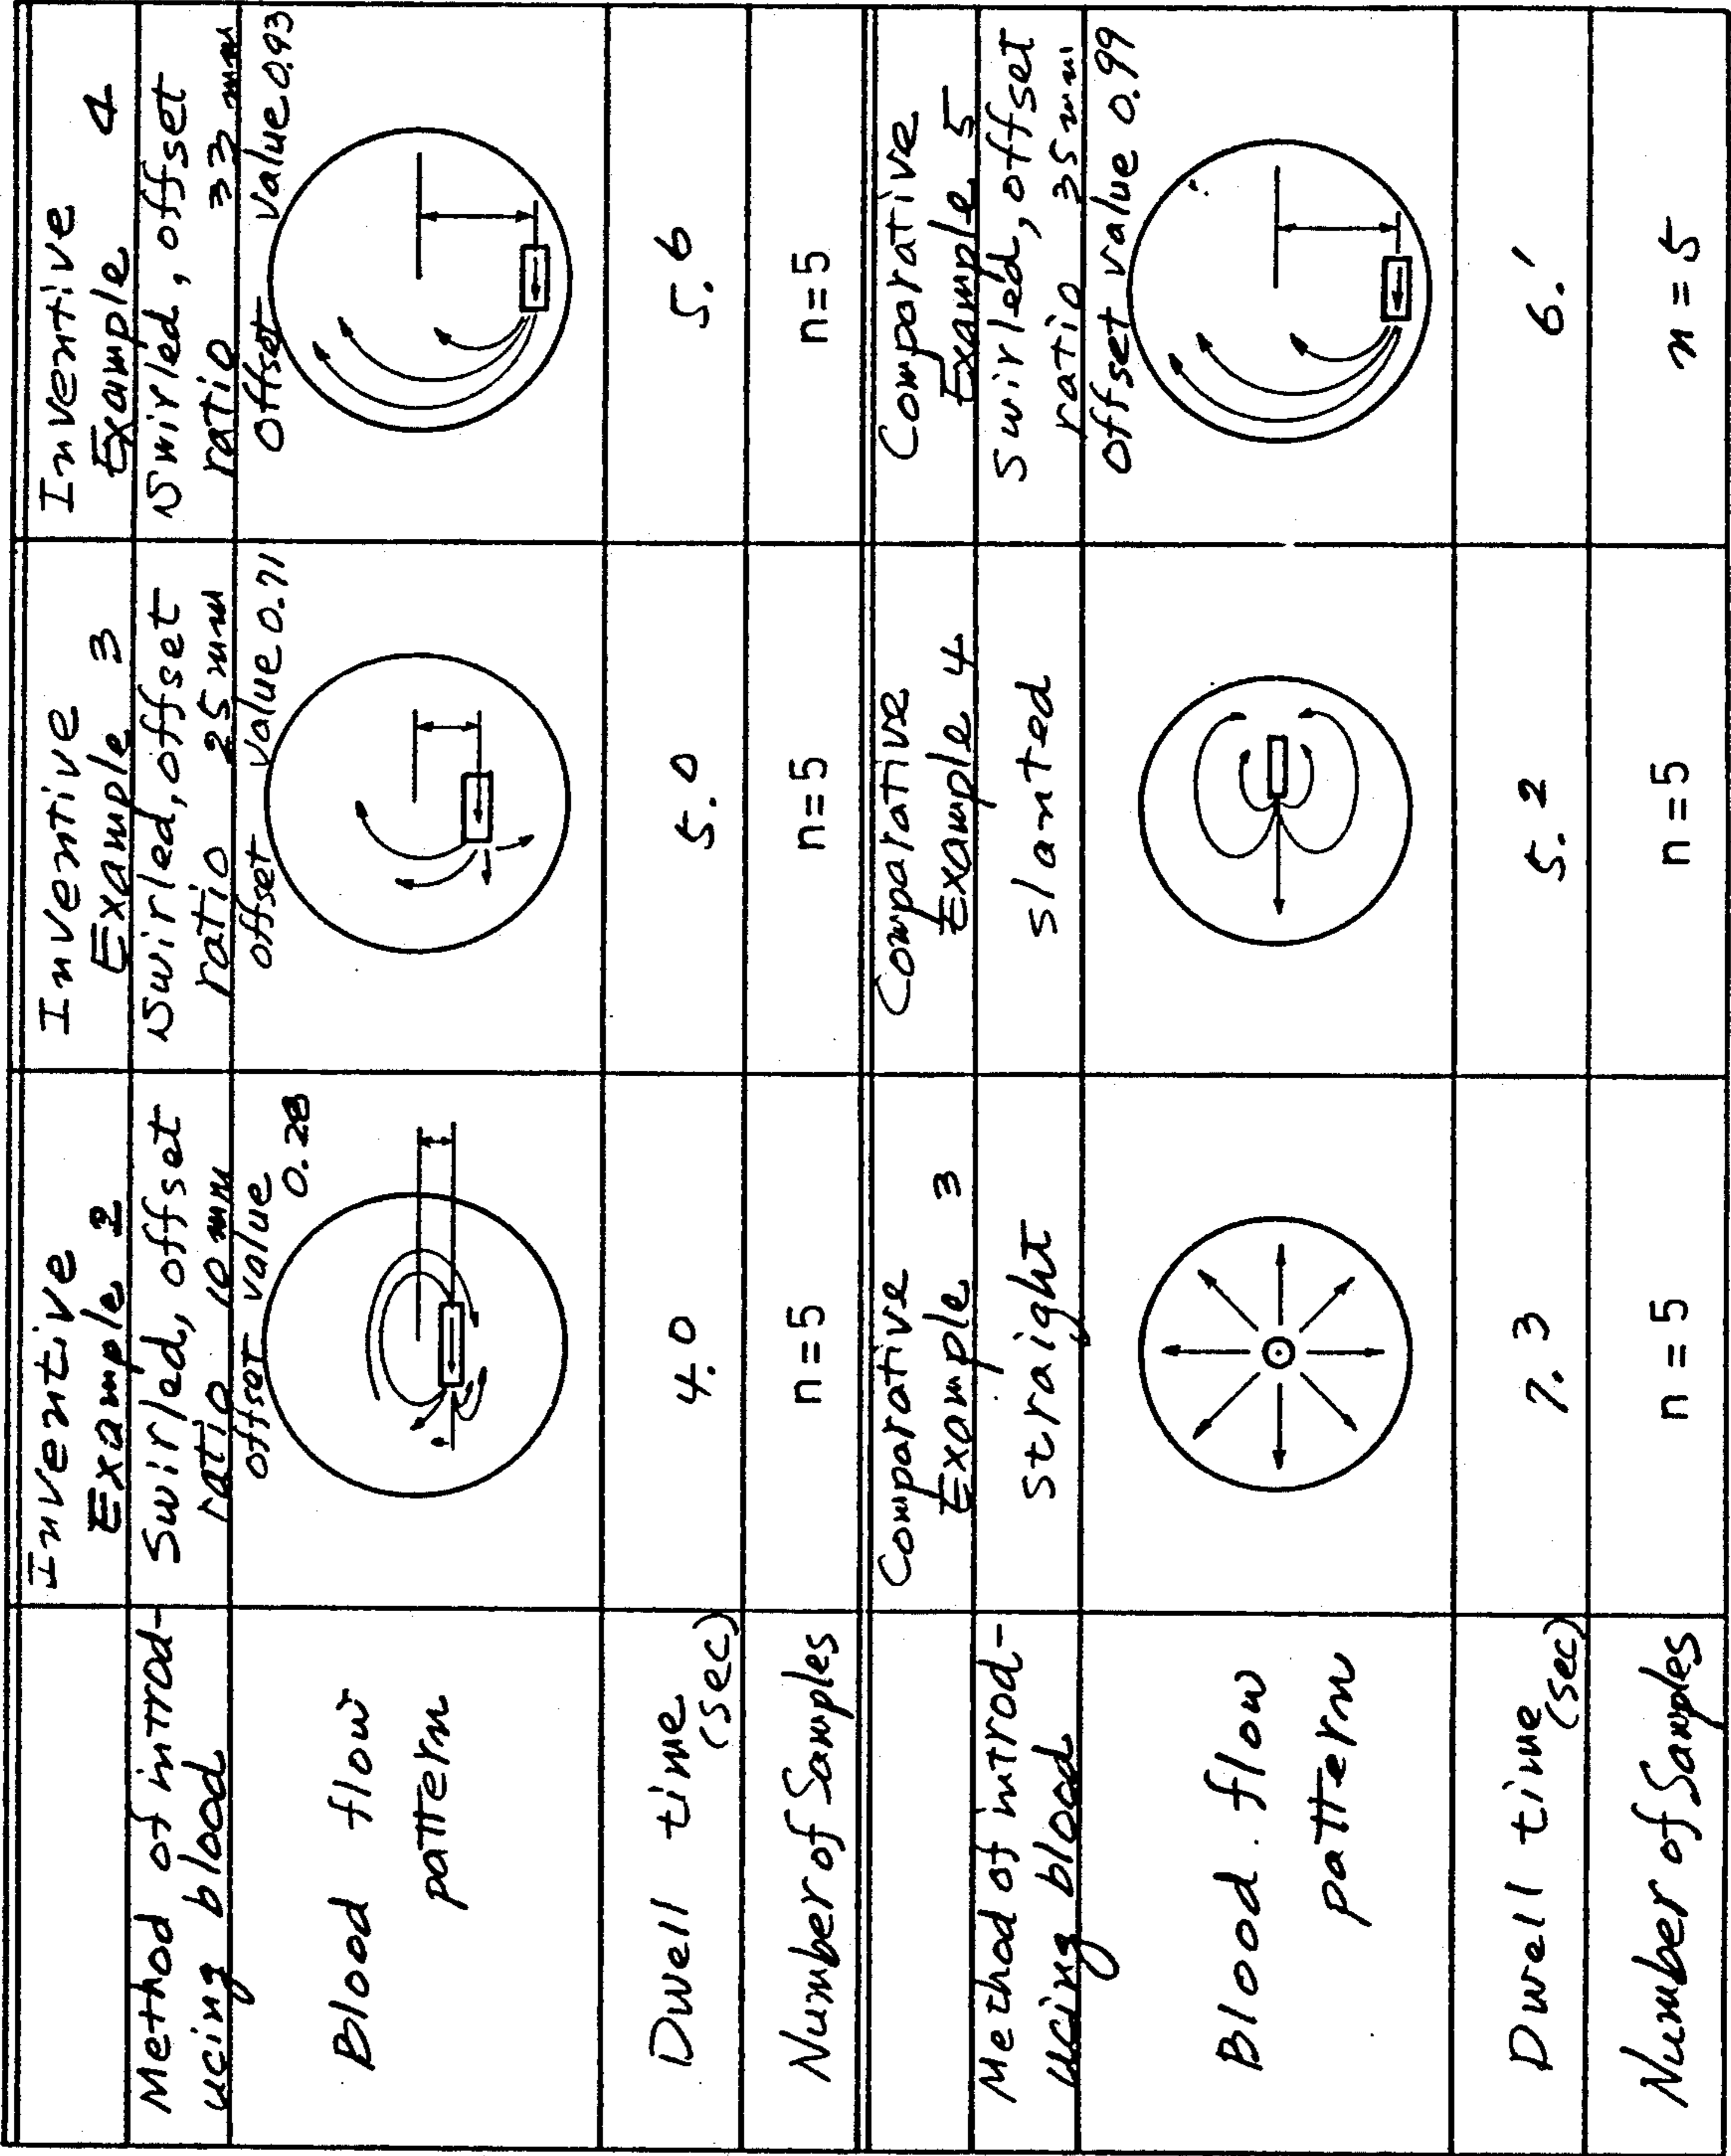 Inventive Example 2
Inventive Example 3
Inventive Example 4
Method of introducing blood
Swirled, offset ratio 10 mm
Swirled, offset ratio 25 mm
Swirled, offset ratio 33 mm
Blood flow pattern
offset value 0.28
offset value 0.71
offset value 0.93
Dwell time (sec)
4.0
5.0
5.6
Number of Samples
n=5
n=5
n=5
Comparative Example 3
Comparative Example 4
Comparative Example 5
Method of introd-
ucing blood
straight
slanted
Swirled, offset ratio 35 mm
Blood flow pattern
offset value 0.99
Dwell time (sec)
7.3
5.2
6.1
Number of Samples
n=5
n=5
n=5